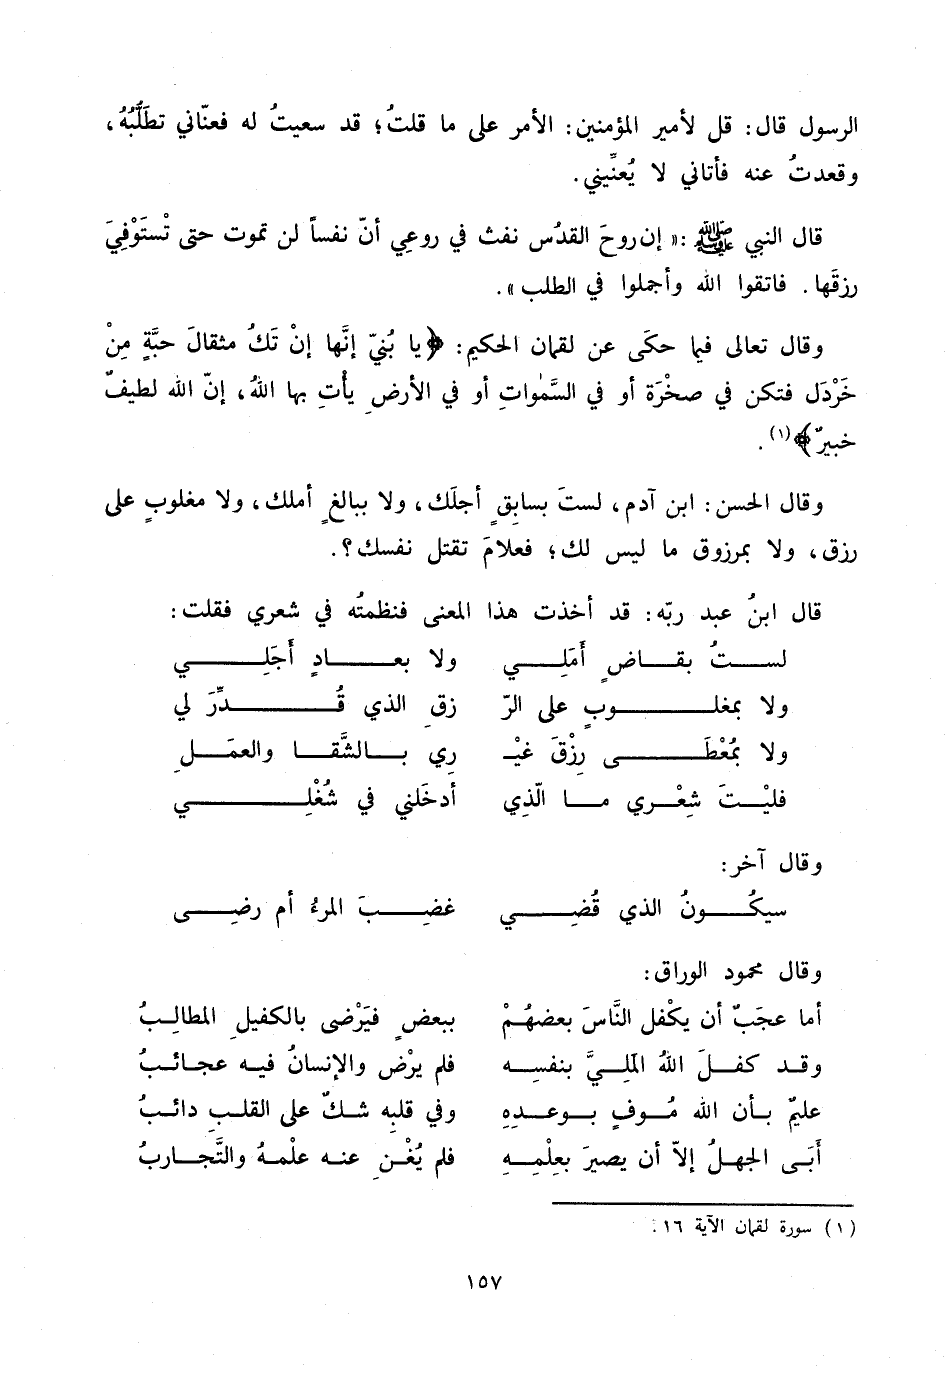 الرسول قال: قل لأمير المؤمنين: الأمر على ما قلتُ؛ قد سعيتُ له فعنّاني تطلُّبُهُ،
وقعدتُ عنه فأتاني لا يُعنِّيني.
قال النبي ﷺ: « إن روحَ القدُس نفث في روعِي أنّ نفساً لن تموت حتى تْستَوْفِيَ
رزقَها. فاتقوا الله وأجملوا في الطلب ».
وقال تعالى فيما حكَى عن لقمان الحكيم: ﴿يا بُنيّ إنَّها إنْ تَكُ مثقالَ حبَّةٍ مِنْ
خَرْدَل فتكن في صخْرَة أو في السَّمٰواتِ أو في الأرضِ يأْتِ بها اللهُ، إنّ الله لطيفٌ
خبيرٌ﴾(١).
وقال الحسن: ابن آدم، لستَ بسابِقٍ أجلَك، ولا ببالغٍ أملك، ولا مغلوبٍ على
رزق، ولا بمرزوق ما ليس لك؛ فعلامَ تقتل نفسك؟.
قال ابنُ عبد ربّه: قد أخذت هذا المعنى فنظمتُه في شعري فقلت:
لستُ بقاضٍ أَمَلِي ولا بعادٍ أَجَلِي
ولا بمغلوبٍ على الرّ زقِ الذي قُدِّرَ لي
ولا بمُعْطَى رِزْقَ غيْـ ري بالشَّقا والعمَلِ
فليْتَ شِعْري ما الّذي أدخَلني في شُغْلِي
وقال آخر:
سيكُونُ الذي قُضِي غضِبَ المرءُ أم رضِى
وقال محمود الوراق:
أما عجَبٌ أن يكْفل النَّاسَ بعضهُمْ ببعضٍ فيَرْضى بالكفيلِ المطالِبُ
وقد كفلَ اللهُ المَلِيَّ بنفسِه فلم يرْض والإنسانُ فيه عجائبُ
عليمٌ بأن الله مُوفٍ بوعدِهِ وفي قلبِه شكٌ على القلبِ دائبُ
أَبَى الجهلُ إلاّ أن يصيرَ بعِلْمِهِ فلم يُغْنِ عنه علْمهُ والتَّجاربُ
(١) سورة لقمان الآية ١٦.
١٥٧